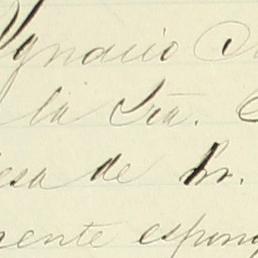 Ygnacio
la Sra.
esa de Sr.
mente espong